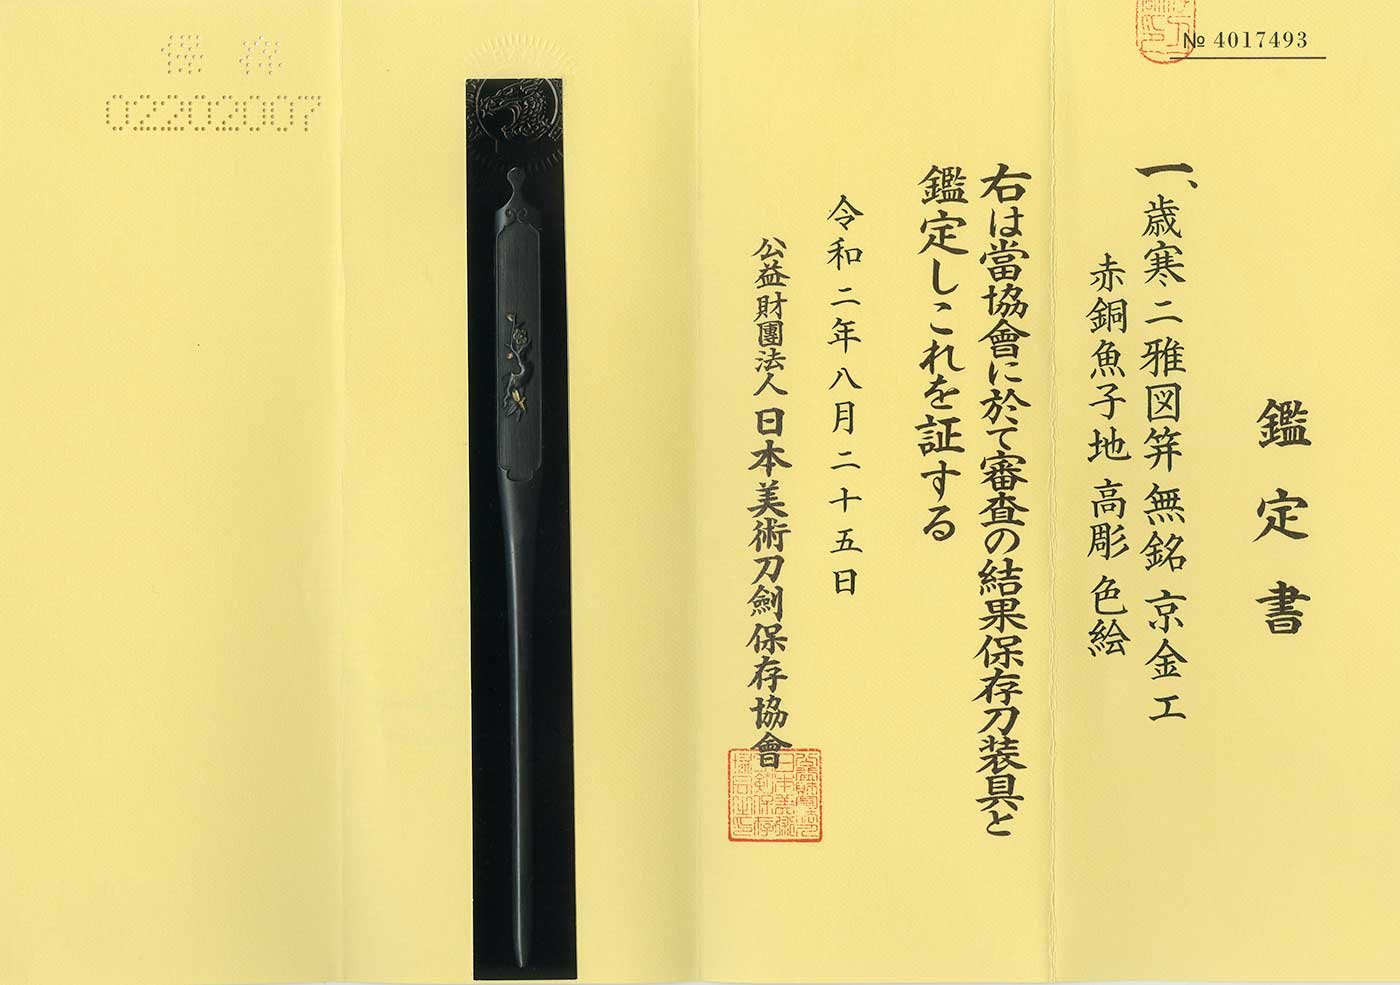 № 4017493
鑑定書
一、歳寒二雅図笄 無銘 京金工
赤銅魚子地 高彫 色絵
右は當協會に於て審査の結果保存刀装具と
鑑定しこれを証する
令和二年八月二十五日
公益財團法人 日本美術刀劍保存協會
保存
02202007